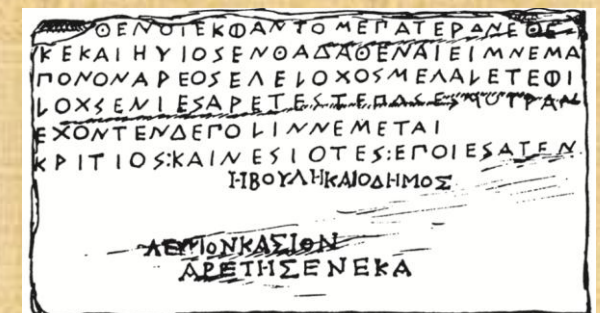 ΘΕΝΟΙΕΚΦΑΝΤΟΜΕΠΑΤΕΡΑΝΕΘΕ
ΚΕΚΑΙΗΥΙΟΣΕΝΘΑΔΑΘΕΝΑΙΕΙΜΝΕΜΑ
ΠΟΝΟΝΑΡΕΟΣΕΓΕΛΟΧΟΣΜΕΓΑΛΕΤΕΦΙ
ΛΟΧΣΕΝΙΕΣΑΡΕΤΕΣΤΕΠΑΣΕΣΜΟΙΡΑΝ
ΕΧΟΝΤΕΝΔΕΠΟΛΙΝΝΕΜΕΤΑΙ
ΚΡΙΤΙΟΣ:ΚΑΙΝΕΣΙΟΤΕΣ:ΕΠΟΙΕΣΑΤΕΝ
ΗΒΟΥΛΗΚΑΙΟΔΗΜΟΣ
ΛΕΥΚΙΟΝΚΑΣΙΟΝ
ΑΡΕΤΗΣΕΝΕΚΑ